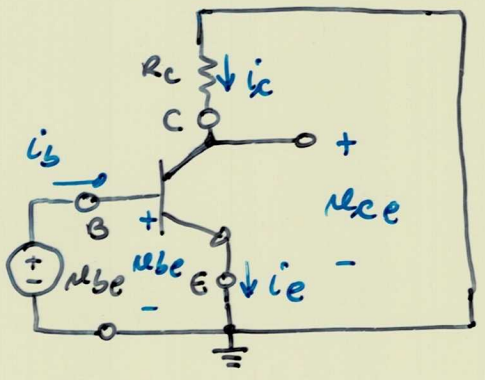 Rc
ic
C
+
ib
B
+
vce
+
-
vbe
vbe
E
ie
-
-